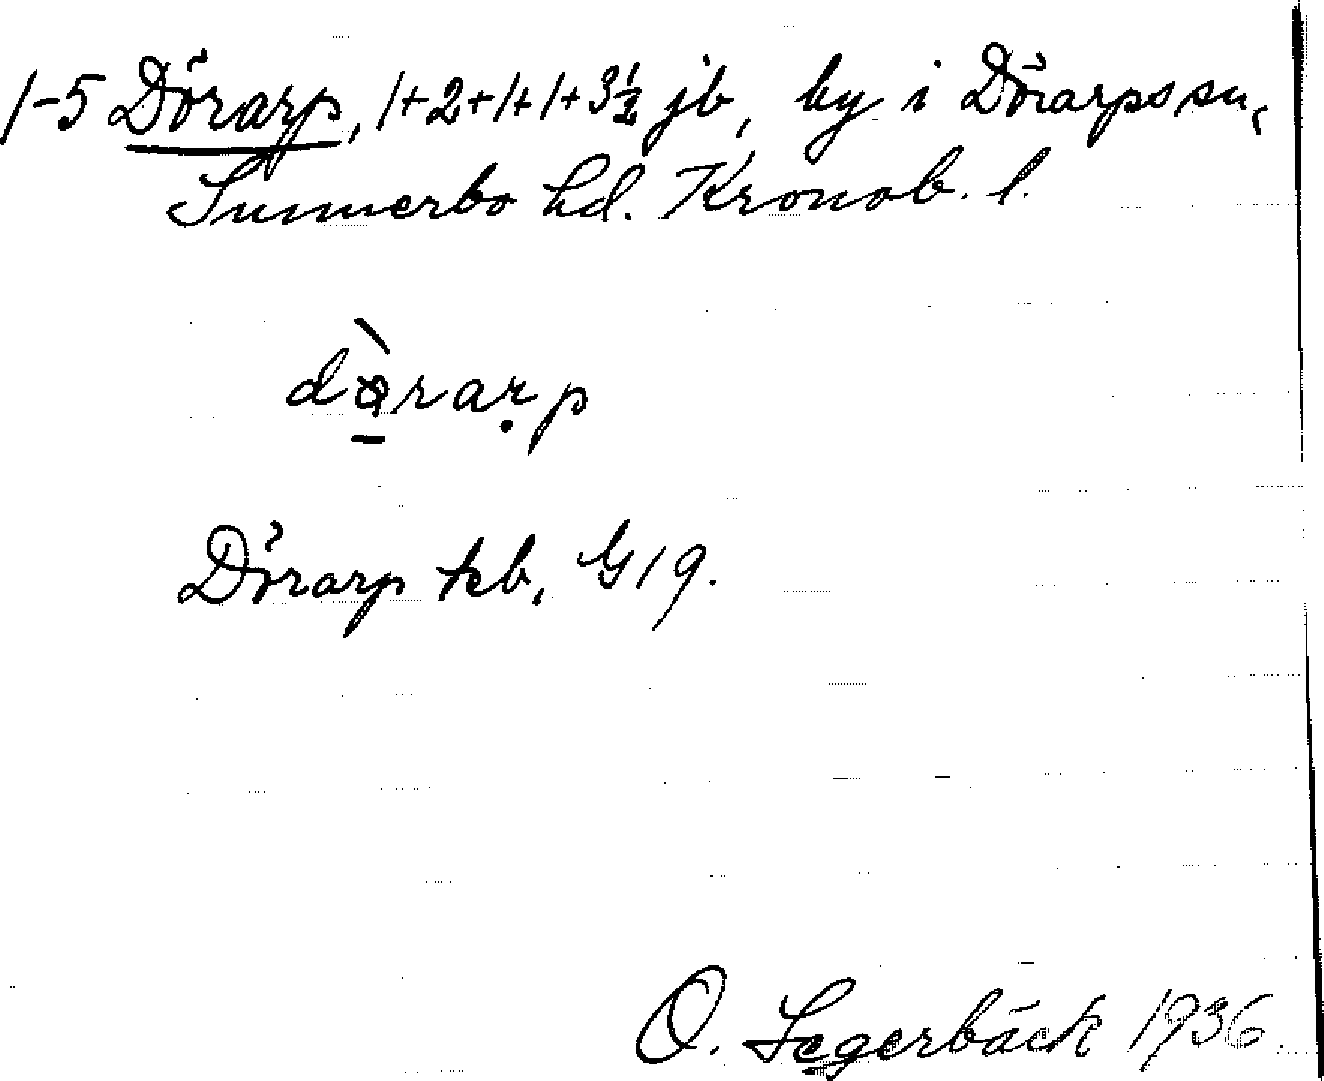 1-5 Dörarp, 1+2+1+1+3½ jb, by i Dörarps sn,
Sunnerbo hd. Kronob. l.
Dörarp tcb, G19.
O. Segerbäck 1936